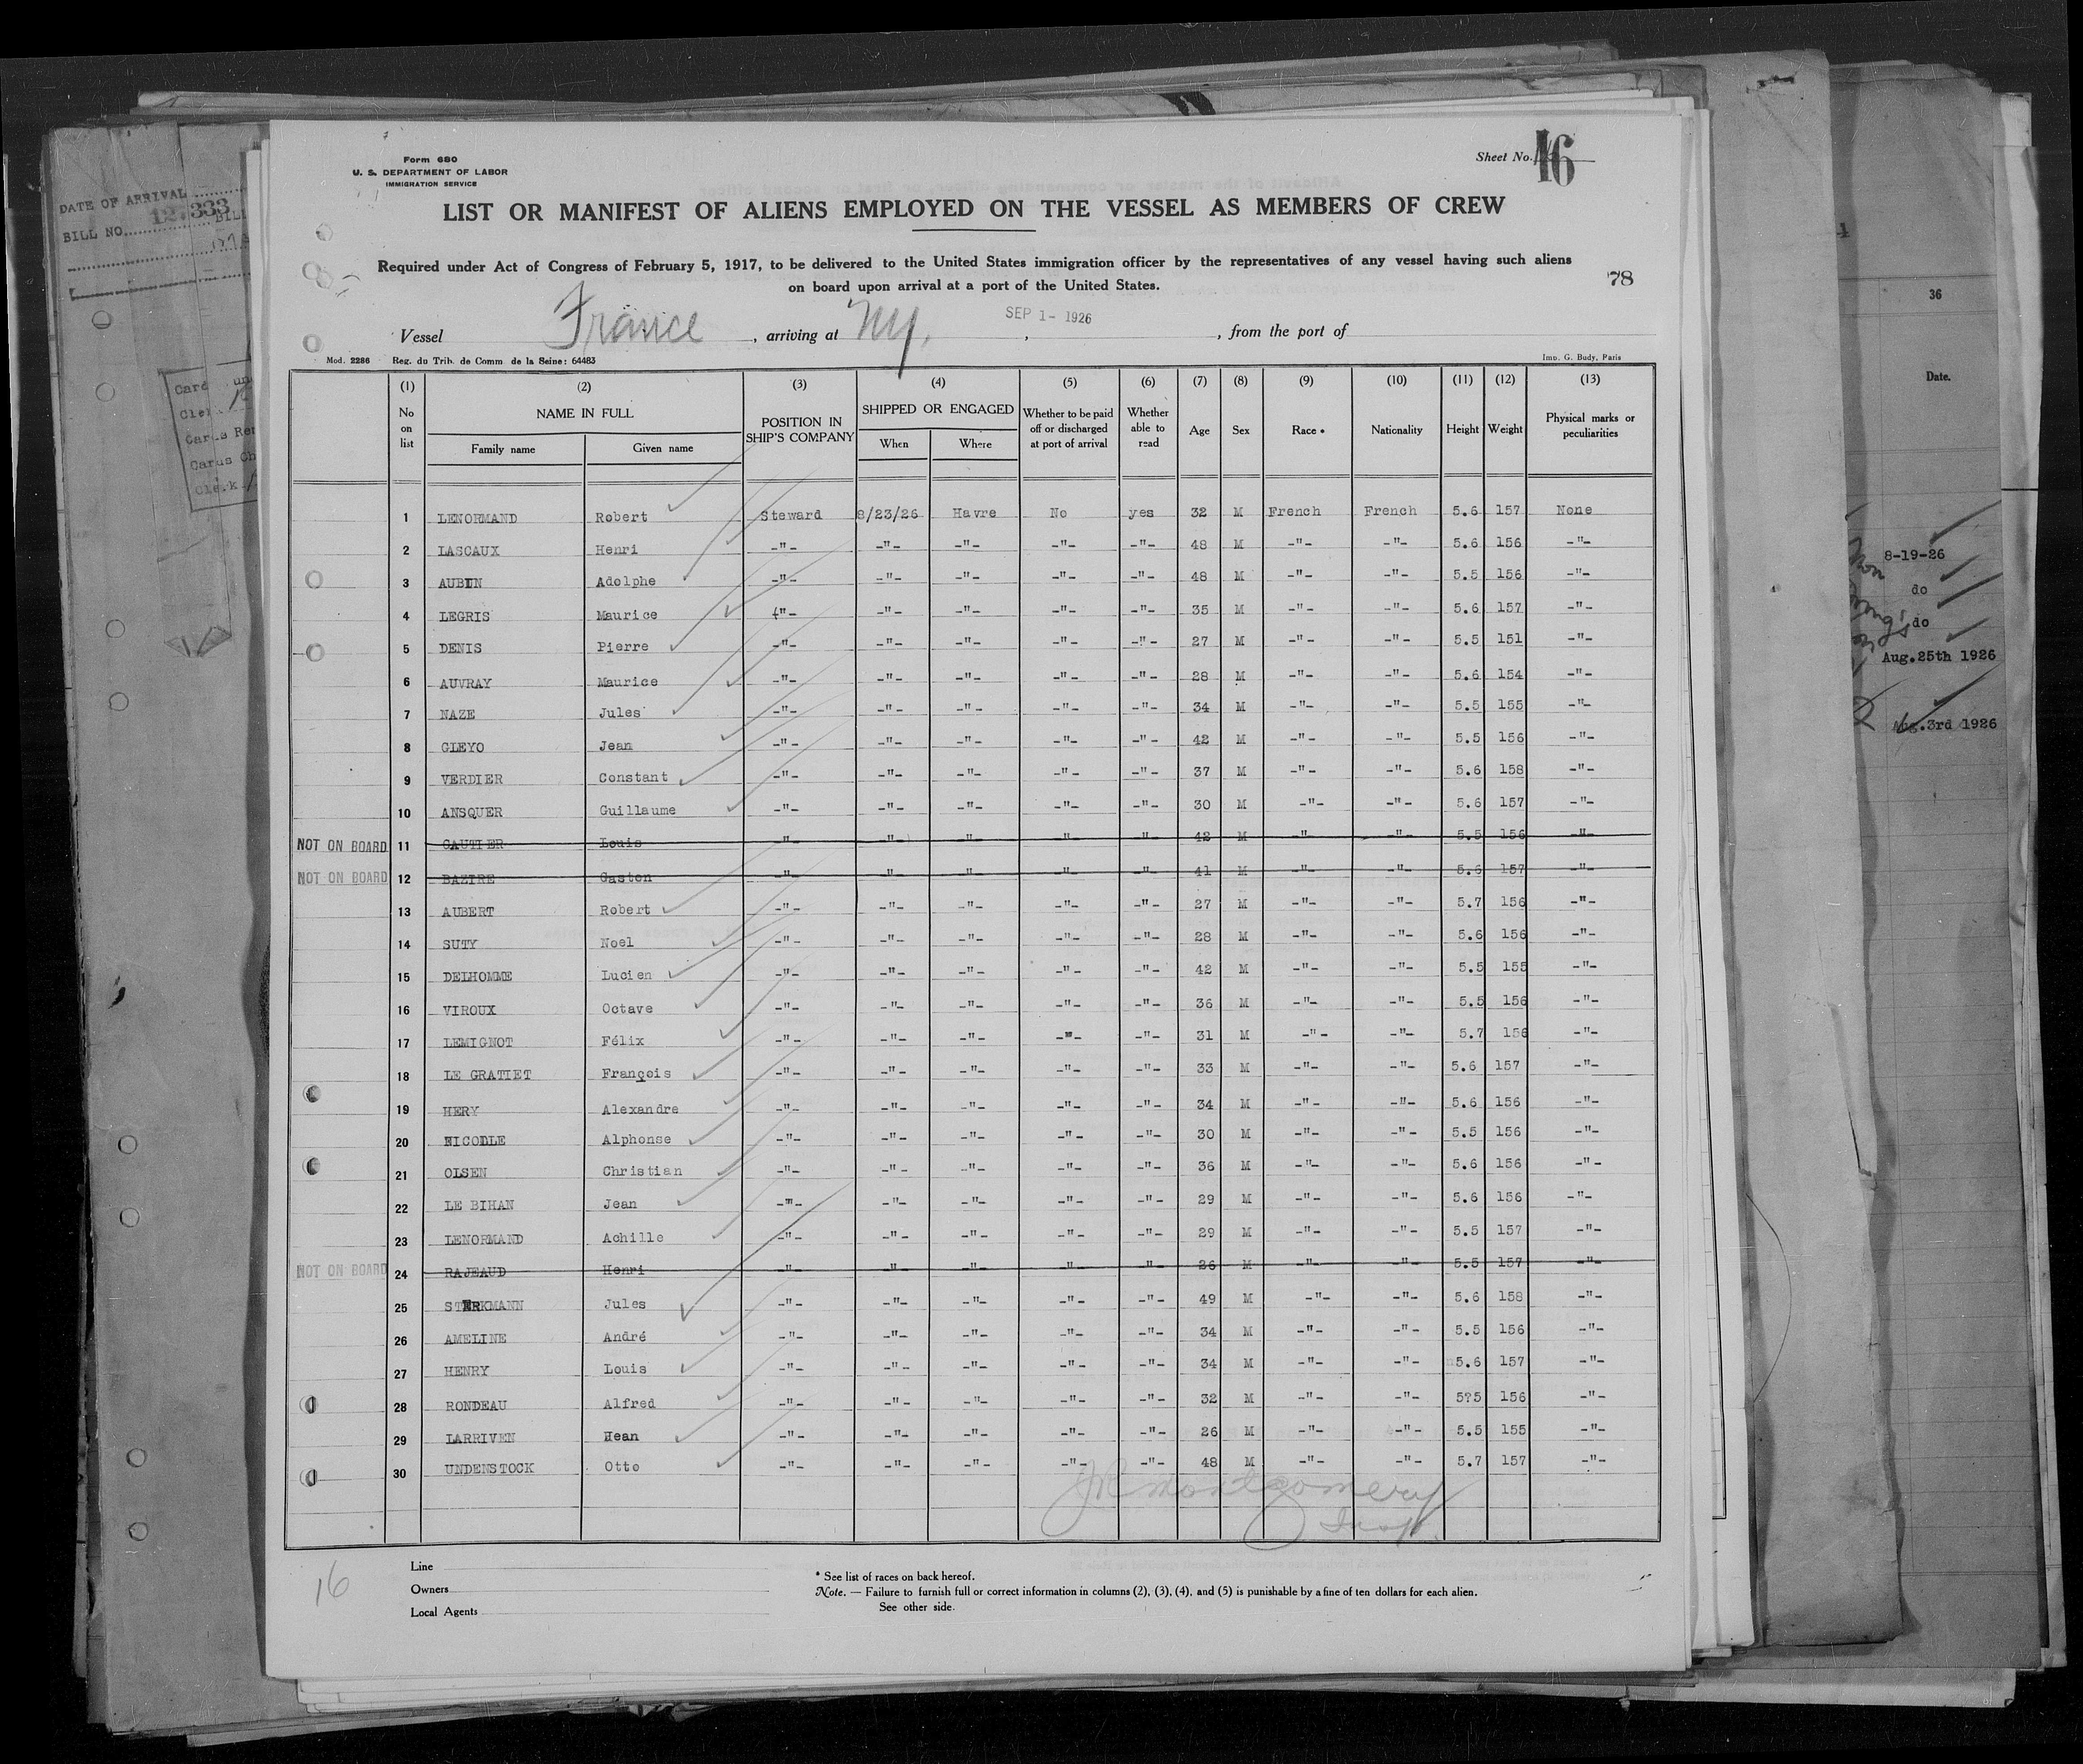 Form 680
U. S. DEPARTMENT OF LABOR
IMMIGRATION SERVICE
Sheet No. 16
LIST OR MANIFEST OF ALIENS EMPLOYED ON THE VESSEL AS MEMBERS OF CREW
Required under Act of Congress of February 5, 1917, to be delivered to the United States immigration officer by the representatives of any vessel having such aliens
on board upon arrival at a port of the United States.
78
Vessel France, arriving at NY, SEP 1- 1926, from the port of
Mod. 2286 Reg. du Trib. de Comm. de la Seine: 64483 Imp. G. Budy, Paris
(1) (2) (3) (4) (5) (6) (7) (8) (9) (10) (11) (12) (13)
No on list NAME IN FULL Family name Given name POSITION IN SHIP'S COMPANY SHIPPED OR ENGAGED When Where Whether to be paid off or discharged at port of arrival Whether able to read Age Sex Race * Nationality Height Weight Physical marks or peculiarities
1 LENORMAND Robert Steward 8/23/26 Havre No yes 32 M French French 5.6 157 None
2 LASCAUX Henri -"- -"- -"- -"- -"- 48 M -"- -"- 5.6 156 -"-
3 AUBIN Adolphe -"- -"- -"- -"- -"- 48 M -"- -"- 5.5 156 -"-
4 LEGRIS Maurice -"- -"- -"- -"- -"- 35 M -"- -"- 5.6 157 -"-
5 DENIS Pierre -"- -"- -"- -"- -"- 27 M -"- -"- 5.5 151 -"-
6 AUVRAY Maurice -"- -"- -"- -"- -"- 28 M -"- -"- 5.6 154 -"-
7 NAZE Jules -"- -"- -"- -"- -"- 34 M -"- -"- 5.5 155 -"-
8 GLEYO Jean -"- -"- -"- -"- -"- 42 M -"- -"- 5.5 156 -"-
9 VERDIER Constant -"- -"- -"- -"- -"- 37 M -"- -"- 5.6 158 -"-
10 ANSQUER Guillaume -"- -"- -"- -"- -"- 30 M -"- -"- 5.6 157 -"-
NOT ON BOARD 11 GAUTIER Louis -"- -"- -"- -"- -"- 42 M -"- -"- 5.5 156 -"-
NOT ON BOARD 12 BAZIRE Gaston -"- -"- -"- -"- -"- 41 M -"- -"- 5.6 157 -"-
13 AUBERT Robert -"- -"- -"- -"- -"- 27 M -"- -"- 5.7 156 -"-
14 SUTY Noel -"- -"- -"- -"- -"- 28 M -"- -"- 5.6 156 -"-
15 DELHOMME Lucien -"- -"- -"- -"- -"- 42 M -"- -"- 5.5 155 -"-
16 VIROUX Octave -"- -"- -"- -"- -"- 36 M -"- -"- 5.5 156 -"-
17 LEMIGNOT Félix -"- -"- -"- -"- -"- 31 M -"- -"- 5.7 156 -"-
18 LE GRATIET François -"- -"- -"- -"- -"- 33 M -"- -"- 5.6 157 -"-
19 HERY Alexandre -"- -"- -"- -"- -"- 34 M -"- -"- 5.6 156 -"-
20 NICOLLE Alphonse -"- -"- -"- -"- -"- 30 M -"- -"- 5.5 156 -"-
21 OLSEN Christian -"- -"- -"- -"- -"- 36 M -"- -"- 5.6 156 -"-
22 LE BIHAN Jean -"- -"- -"- -"- -"- 29 M -"- -"- 5.6 156 -"-
23 LENORMAND Achille -"- -"- -"- -"- -"- 29 M -"- -"- 5.5 157 -"-
NOT ON BOARD 24 RAJEAUD Henri -"- -"- -"- -"- -"- 26 M -"- -"- 5.5 157 -"-
25 STERKMANN Jules -"- -"- -"- -"- -"- 49 M -"- -"- 5.6 158 -"-
26 AMELINE André -"- -"- -"- -"- -"- 34 M -"- -"- 5.5 156 -"-
27 HENRY Louis -"- -"- -"- -"- -"- 34 M -"- -"- 5.6 157 -"-
28 RONDEAU Alfred -"- -"- -"- -"- -"- 32 M -"- -"- 5?5 156 -"-
29 LARRIVEN Hean -"- -"- -"- -"- -"- 26 M -"- -"- 5.5 155 -"-
30 UNDENSTOCK Otto -"- -"- -"- -"- -"- 48 M -"- -"- 5.7 157 -"-
JR Montgomery
Insp.
16
Line
Owners
Local Agents
* See list of races on back hereof.
Note. — Failure to furnish full or correct information in columns (2), (3), (4), and (5) is punishable by a fine of ten dollars for each alien.
See other side.
DATE OF ARRIVAL
12.333
BILL NO.
36
Date.
8-19-26
do
do
Aug.25th 1926
Aug.3rd 1926